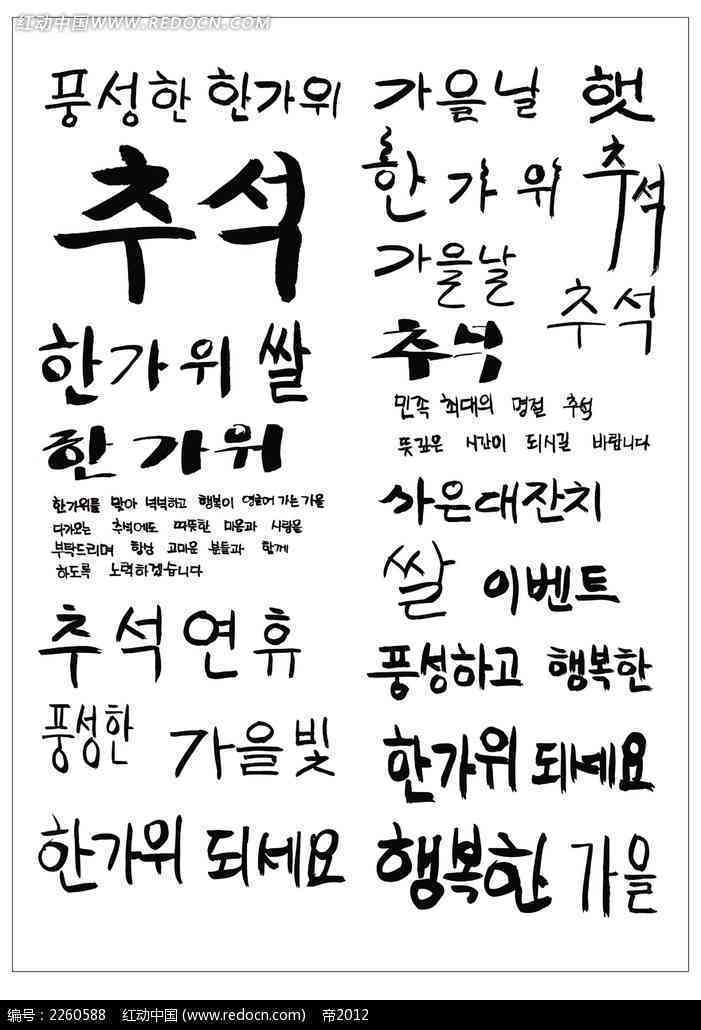 红动中国 WWW.REDOCN.COM
풍성한 한가위
추석
한가위 쌀
한가위
한가위를 맞아 넉넉하고 행복이 영글어 가는 가을
다가오는 추석에도 따뜻한 마음과 사랑을
부탁드리며 항상 고마운 분들과 함께
하도록 노력하겠습니다
추석 연휴
풍성한
가을빛
한가위 되세요
가을날
햇
한가위
추석
가을날
추석
추석
민족 최대의 명절 추석
뜻깊은 시간이 되시길 바랍니다
사은대잔치
쌀
이벤트
풍성하고 행복한
한가위 되세요
행복한
가을
编号：2260588 红动中国 (www.redocn.com) 帝2012